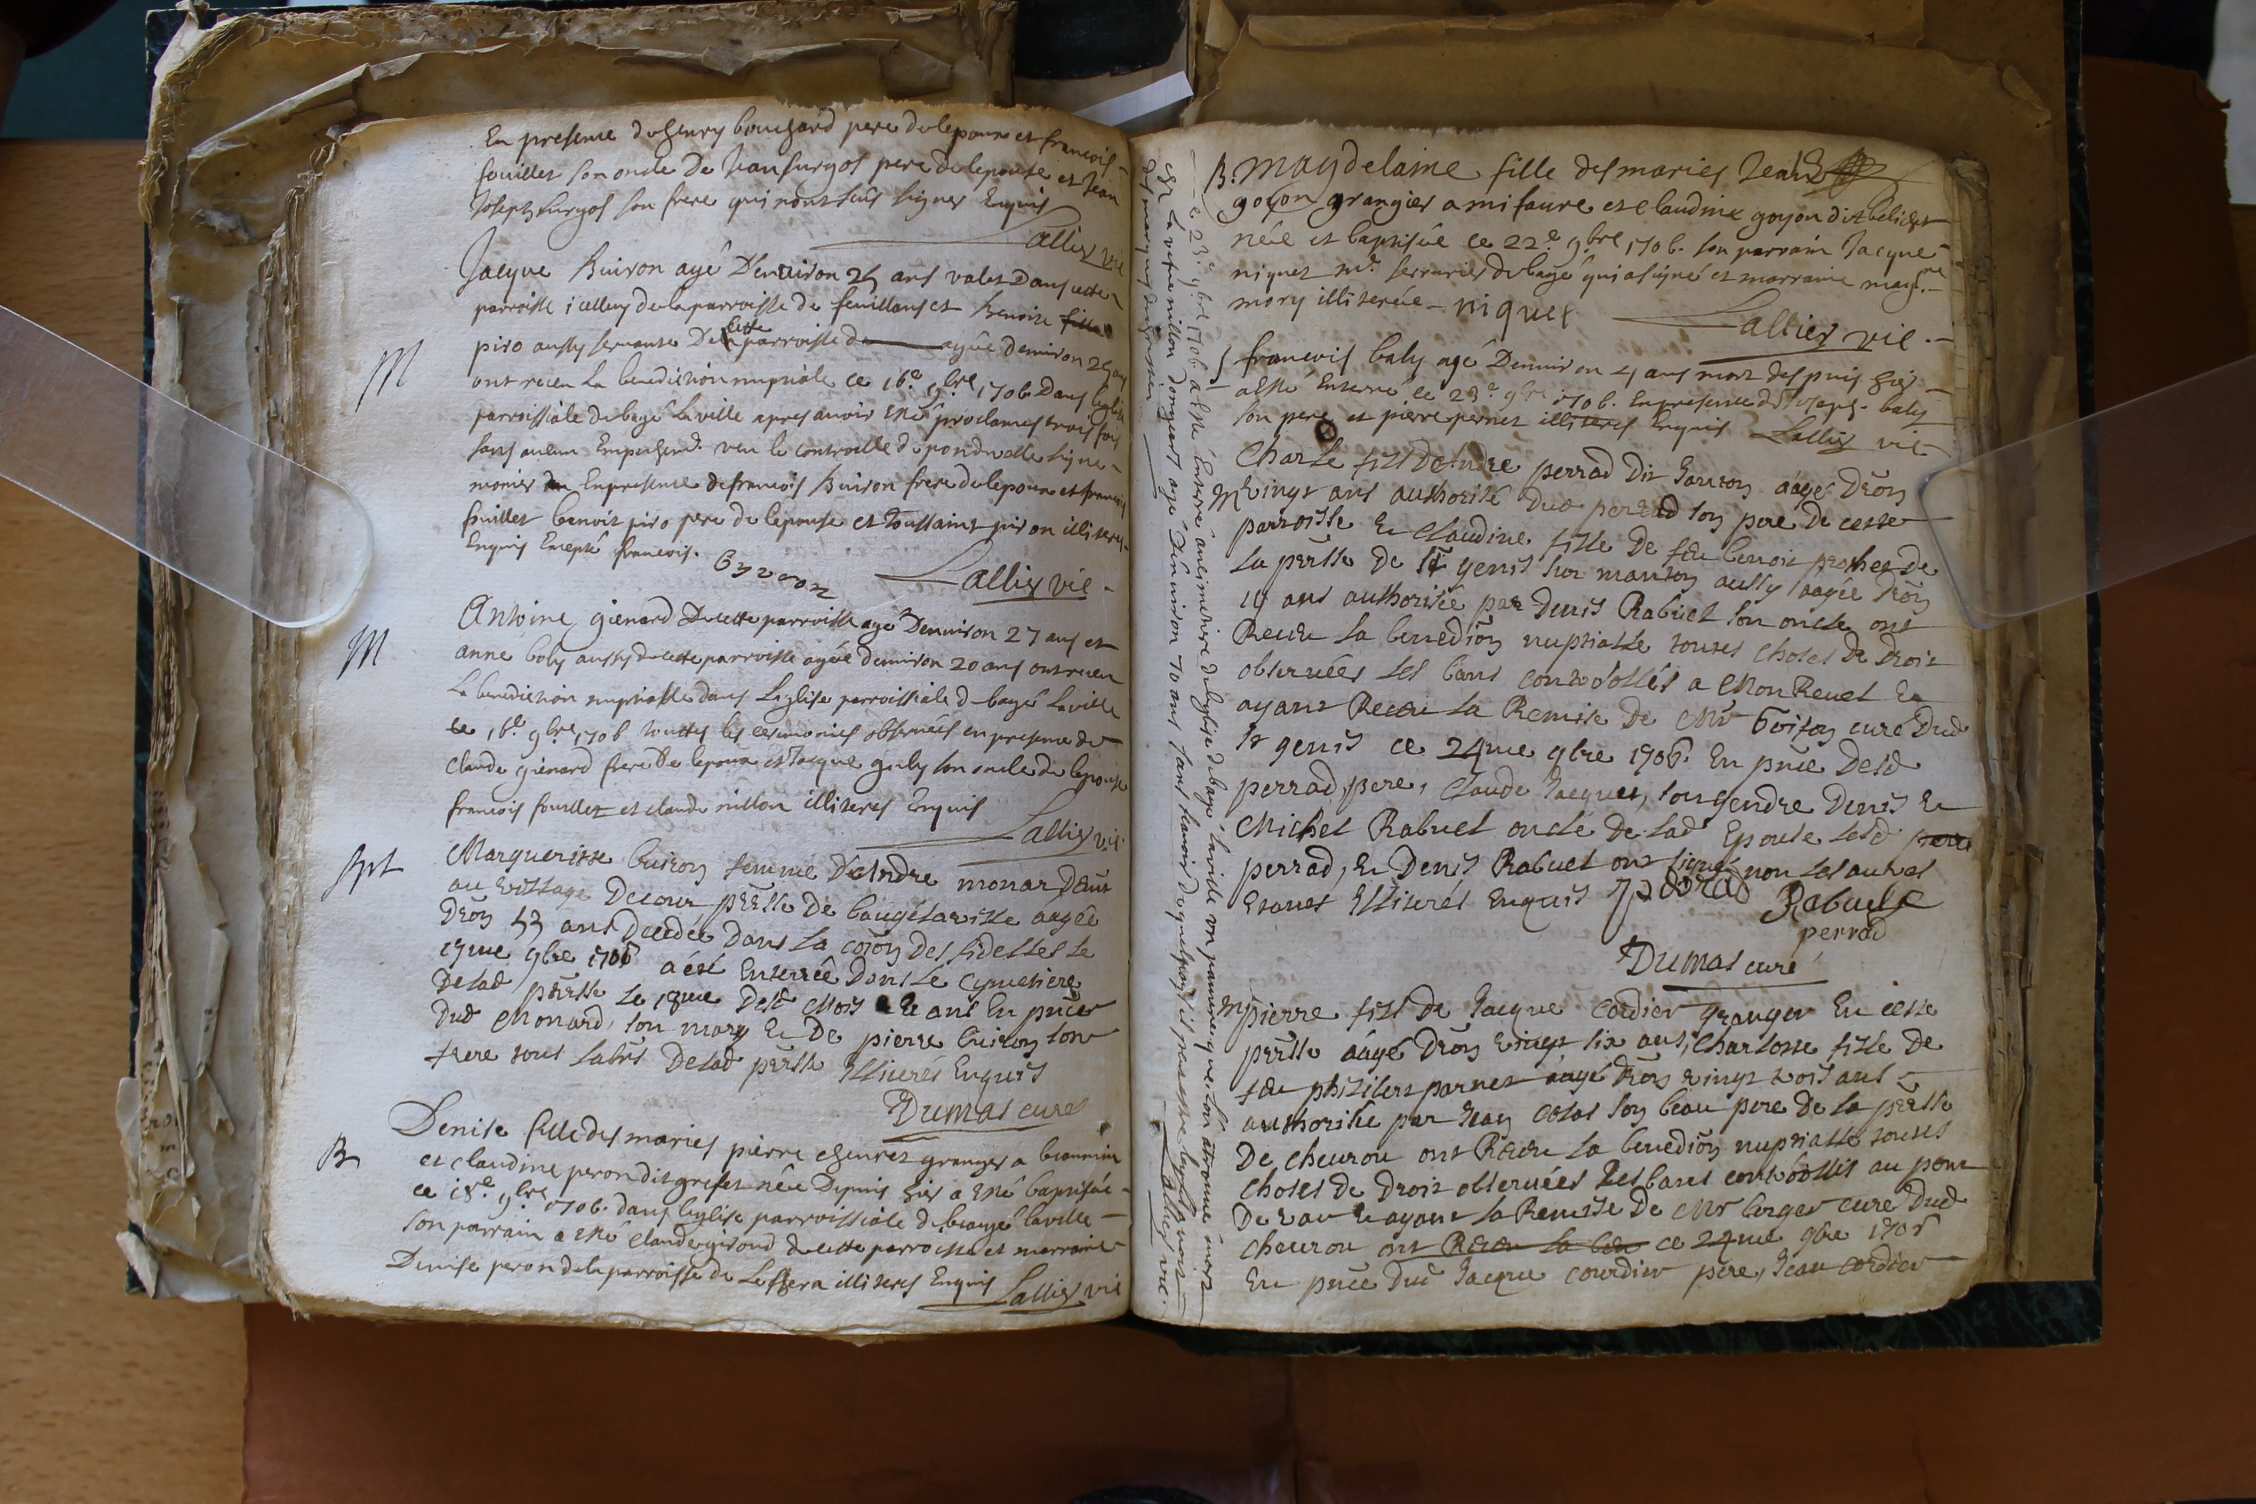 En presence de henry bouchard pere de lepoux et francois
fouillet son oncle de Jean furgot pere de lepouse et Jean
Joseph furgot son frere qui nont sceu signer Enquis
Lallier vic
Jacque Buiron agé D'environ 25 ans valet Dans cette
parroisse icelluy de la parroisse de feuillans et Benoite fille
piro aussy servante De cette parroisse de agée denviron 25 ans
M
ont receu La benediction nuptiale ce 16e 9bre 1706 Dans leglise
parroissiale de bagé laville apres avoir Esté proclames trois fois
sans aucun Empeschemt. veu le controolle de pondevelle signé
monier En presence de francois Buiron frere de lepoux et francois
fouillet benoit piro pere de lepouse et Toussaint piron illiteres
Enquis Excepté francois. Byron
Lallier vic
Antoine giénard De cette parroisse agé Denviron 27 ans et
M
anne boly aussy de cette parroisse agée denviron 20 ans ont receu
La benediction nuptialle dans Leglise parroissiale de bagé Laville
ce 16e 9bre 1706 touttes les ceremonies observées en presence de
claude giénard frere de lepoux et Jacque goly son oncle de lepouse
francois fouillet et claude nillon illiteres Enquis
Lallier vic
Spt
Margueritte buiron femme D'Andre monard Dant
au village Decour psse De baugé laville aagée
Dron 53 ans Decedée Dans la coion des fidelles le
17me 9bre 1706 a été Enterrée Dans le cymetiere
De lad psse le 18me Desd Mois Et ans En pnce
Dud Monard, son mary Et De pierre buiron son
frere tous labrs De lad psse Illiterés Enquis
Dumas curé
B
Denise fille des maries pierre chevret granger a beaumin
et claudine peron dit grefet née Depuis hier a esté baptisée
ce 18e 9bre 1706. dans leglise parroissiale de beaugé laville
son parrain a esté claude giroud de cette parroisse et marraine
Denise peron de la parroisse de Leschera illiteres Enquis Lallier vic
ce 23e 9bre 1706 a esté Enterré au cimetiere de leglise de bagé laville un pauvre que lon a trouvé mort
chez La vefve nillon dongeart agé denviron 70 ans sans scavoir de quel pays il peut estre
Lallier vic.
B. Magdelaine fille des maries Jean
goyon grangier a mifaure et claudine goyon dit belichet
née et baptisée ce 22e 9bre 1706. son parrain Jacque
niquet mr. serrurier de bagé qui a signé et marraine magne
mory illiterée - niquet
Lallier vic.
S francois baly agé Denviron 4 ans mort despuis hier
a esté Enterré ce 23e 9bre 1706. En presence de Joseph baly
son pere et pierre pernet illiteres Enquis Lallier vic
Charle fils de feu perrad Dit Jantoy aagé Dron
M vingt ans authorisé Dud perrad son pere De cette
parroisse Et Claudine fille De feu benoit prothet De
La psse De St genis sur manton aussy aagée Dron
19 ans authorisée par Denis Rabuel son oncle ont
Receu la benedion nuptialle toutes choses De Droit
observées Les bans controollés a Mon Revel Et
ayant Receu La Remise De Mr Goiton curé Dud
St genis ce 24me 9bre 1706. En pnce Desd
perrad, pere, Claude Jacquet, son gendre Denis Et
Michel Rabuel oncle De lad Epouse lesd
perrad, Et Denis Rabuel ont signé non les autres
Etants Illiterés Enquis perrad Rabuel
perrad
Dumas curé
M pierre fils de Jacque cordier granger En cette
psse aagé Dron vingt six ans, Charlotte fille De
feu philibert parnet aagé Dron vingt trois ans
authorisée par Jean colas son beau pere De la psse
De cheurou ont Receu la benedion nuptialle toutes
choses De Droit observées Les bans controollés au pont
De vau Et ayant la Remisse De Mr berger curé Dud
cheurou ont Receu la ben ce 24me 9bre 1706
En pnce Dud Jacque courdier pere, Jean cordier